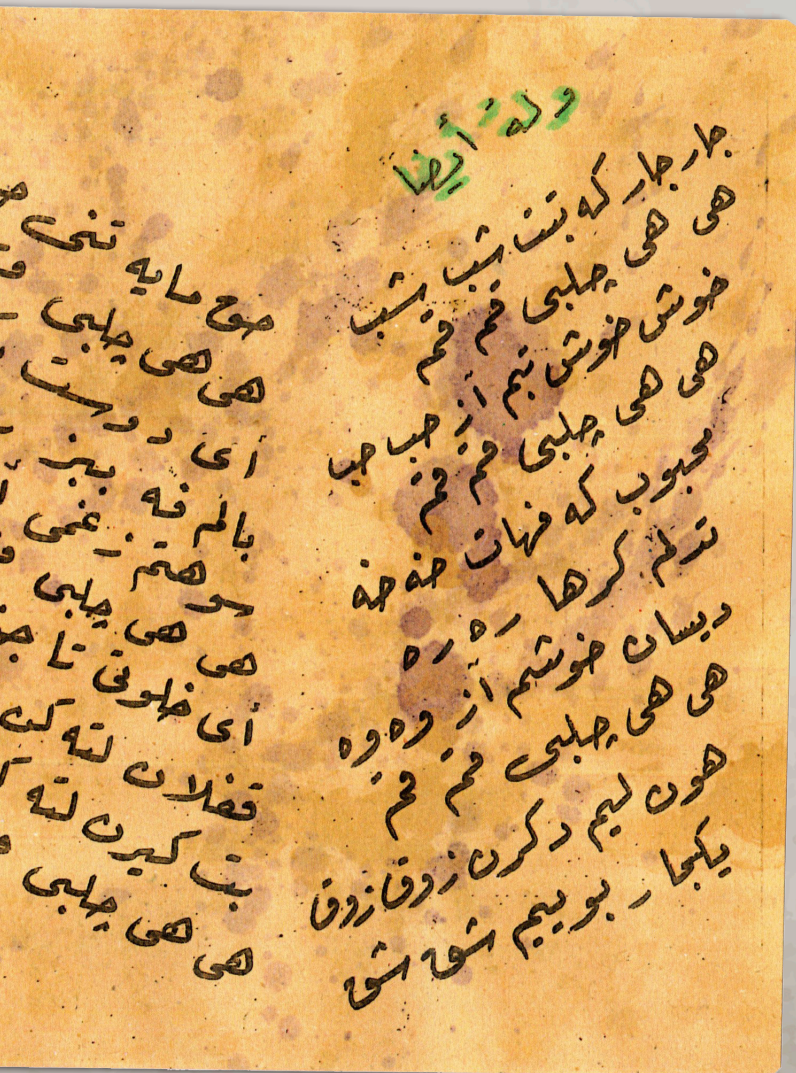 وله أيضا
جار جار كه بتت شب بشب
هى هى چلبى قم قم
خوش خوش تبم أز حب حب
هى هى چلبى قم قم
محبوب كه فهات خه خه
تدلم كرها ره ره
ديسان خوشم أز وه وه
هى هى چلبى قم قم
هون ليم دكرن زوق زوق
يكجار بوييم شق شق
مايه تنى
هى هى چلبى
أى دوست
بالم فه ببز
سوهتم ز غمى
هى هى چلبى
أى خلوتى تا
قفلان لته كن
بت كيرن لته
هى هى چلبى